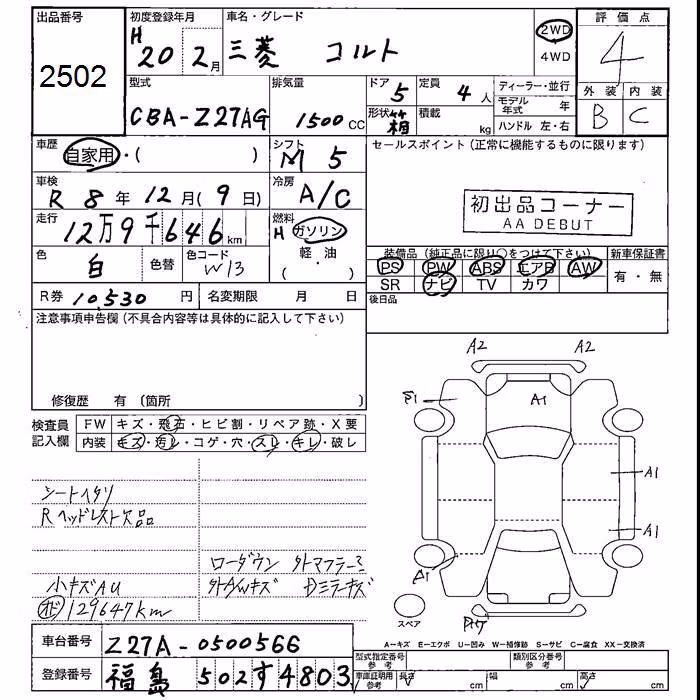 出品番号
2502
初度登録年月
H 20 2月
車名・グレード
三菱 コルト
2WD
4WD
評価点
4
型式
CBA-Z27AG
排気量
1500 CC
ドア
5
定員
4 人
形状 箱
積載 kg
ディーラー・並行
モデル年式 年
ハンドル 左・右
外装 内装
B C
車歴
自家用・( )
シフト
M 5
セールスポイント(正常に機能するものに限ります)
車検
R 8年 12月(9日)
冷房
A/C
初出品コーナー
AA DEBUT
走行
12万9千646km
燃料
H ガソリン
軽・油
( )
色
白
色替
色コード
W13
装備品(純正品に限り○をつけて下さい)
新車保証書
PS PW ABS エアB AW
SR ナビ TV カワ
有・無
R券 10530 円
名変期限 月 日
後日品
注意事項申告欄(不具合内容等は具体的に記入して下さい)
修復歴 有(箇所 )
検査員
記入欄
FW キズ・飛石・ヒビ割・リペア跡・X要
内装 キズ・汚レ・コゲ・穴・スレ・キレ・破レ
シートヘタリ
Rヘッドレスト欠品
ローダウン 外マフラー
小キズAU
外A/Wキズ DミラーキズX
129647km
A2
A2
A1
A1
A1
A1
スペア
A-キズ E-エクボ U-凹み W-補修跡 S-サビ C-腐食 XX-交換済
車台番号
Z27A-0500566
登録番号
福島 502 す 4803
型式指定番号
参考
類別区分番号
参考
車庫証明用
参考
長さ cm
幅 cm
高さ cm